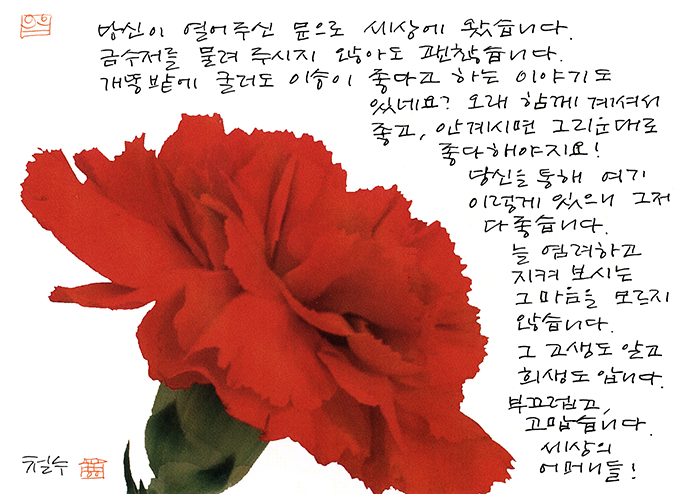 당신이 열어주신 문으로 세상에 왔습니다.
금수저를 물려 주시지 않아도 괜찮습니다.
개똥밭에 굴러도 이승이 좋다고 하는 이야기도
있네요? 오래 함께 계셔서
좋고, 안계시면 그리운대로
좋다해야지요!
당신을 통해 여기
이렇게 있으니 그저
다 좋습니다.
늘 염려하고
지켜 보시는
그 마음을 모르지
않습니다.
그 고생도 알고
희생도 압니다.
부끄럽고,
고맙습니다.
세상의
어머니들!
철수